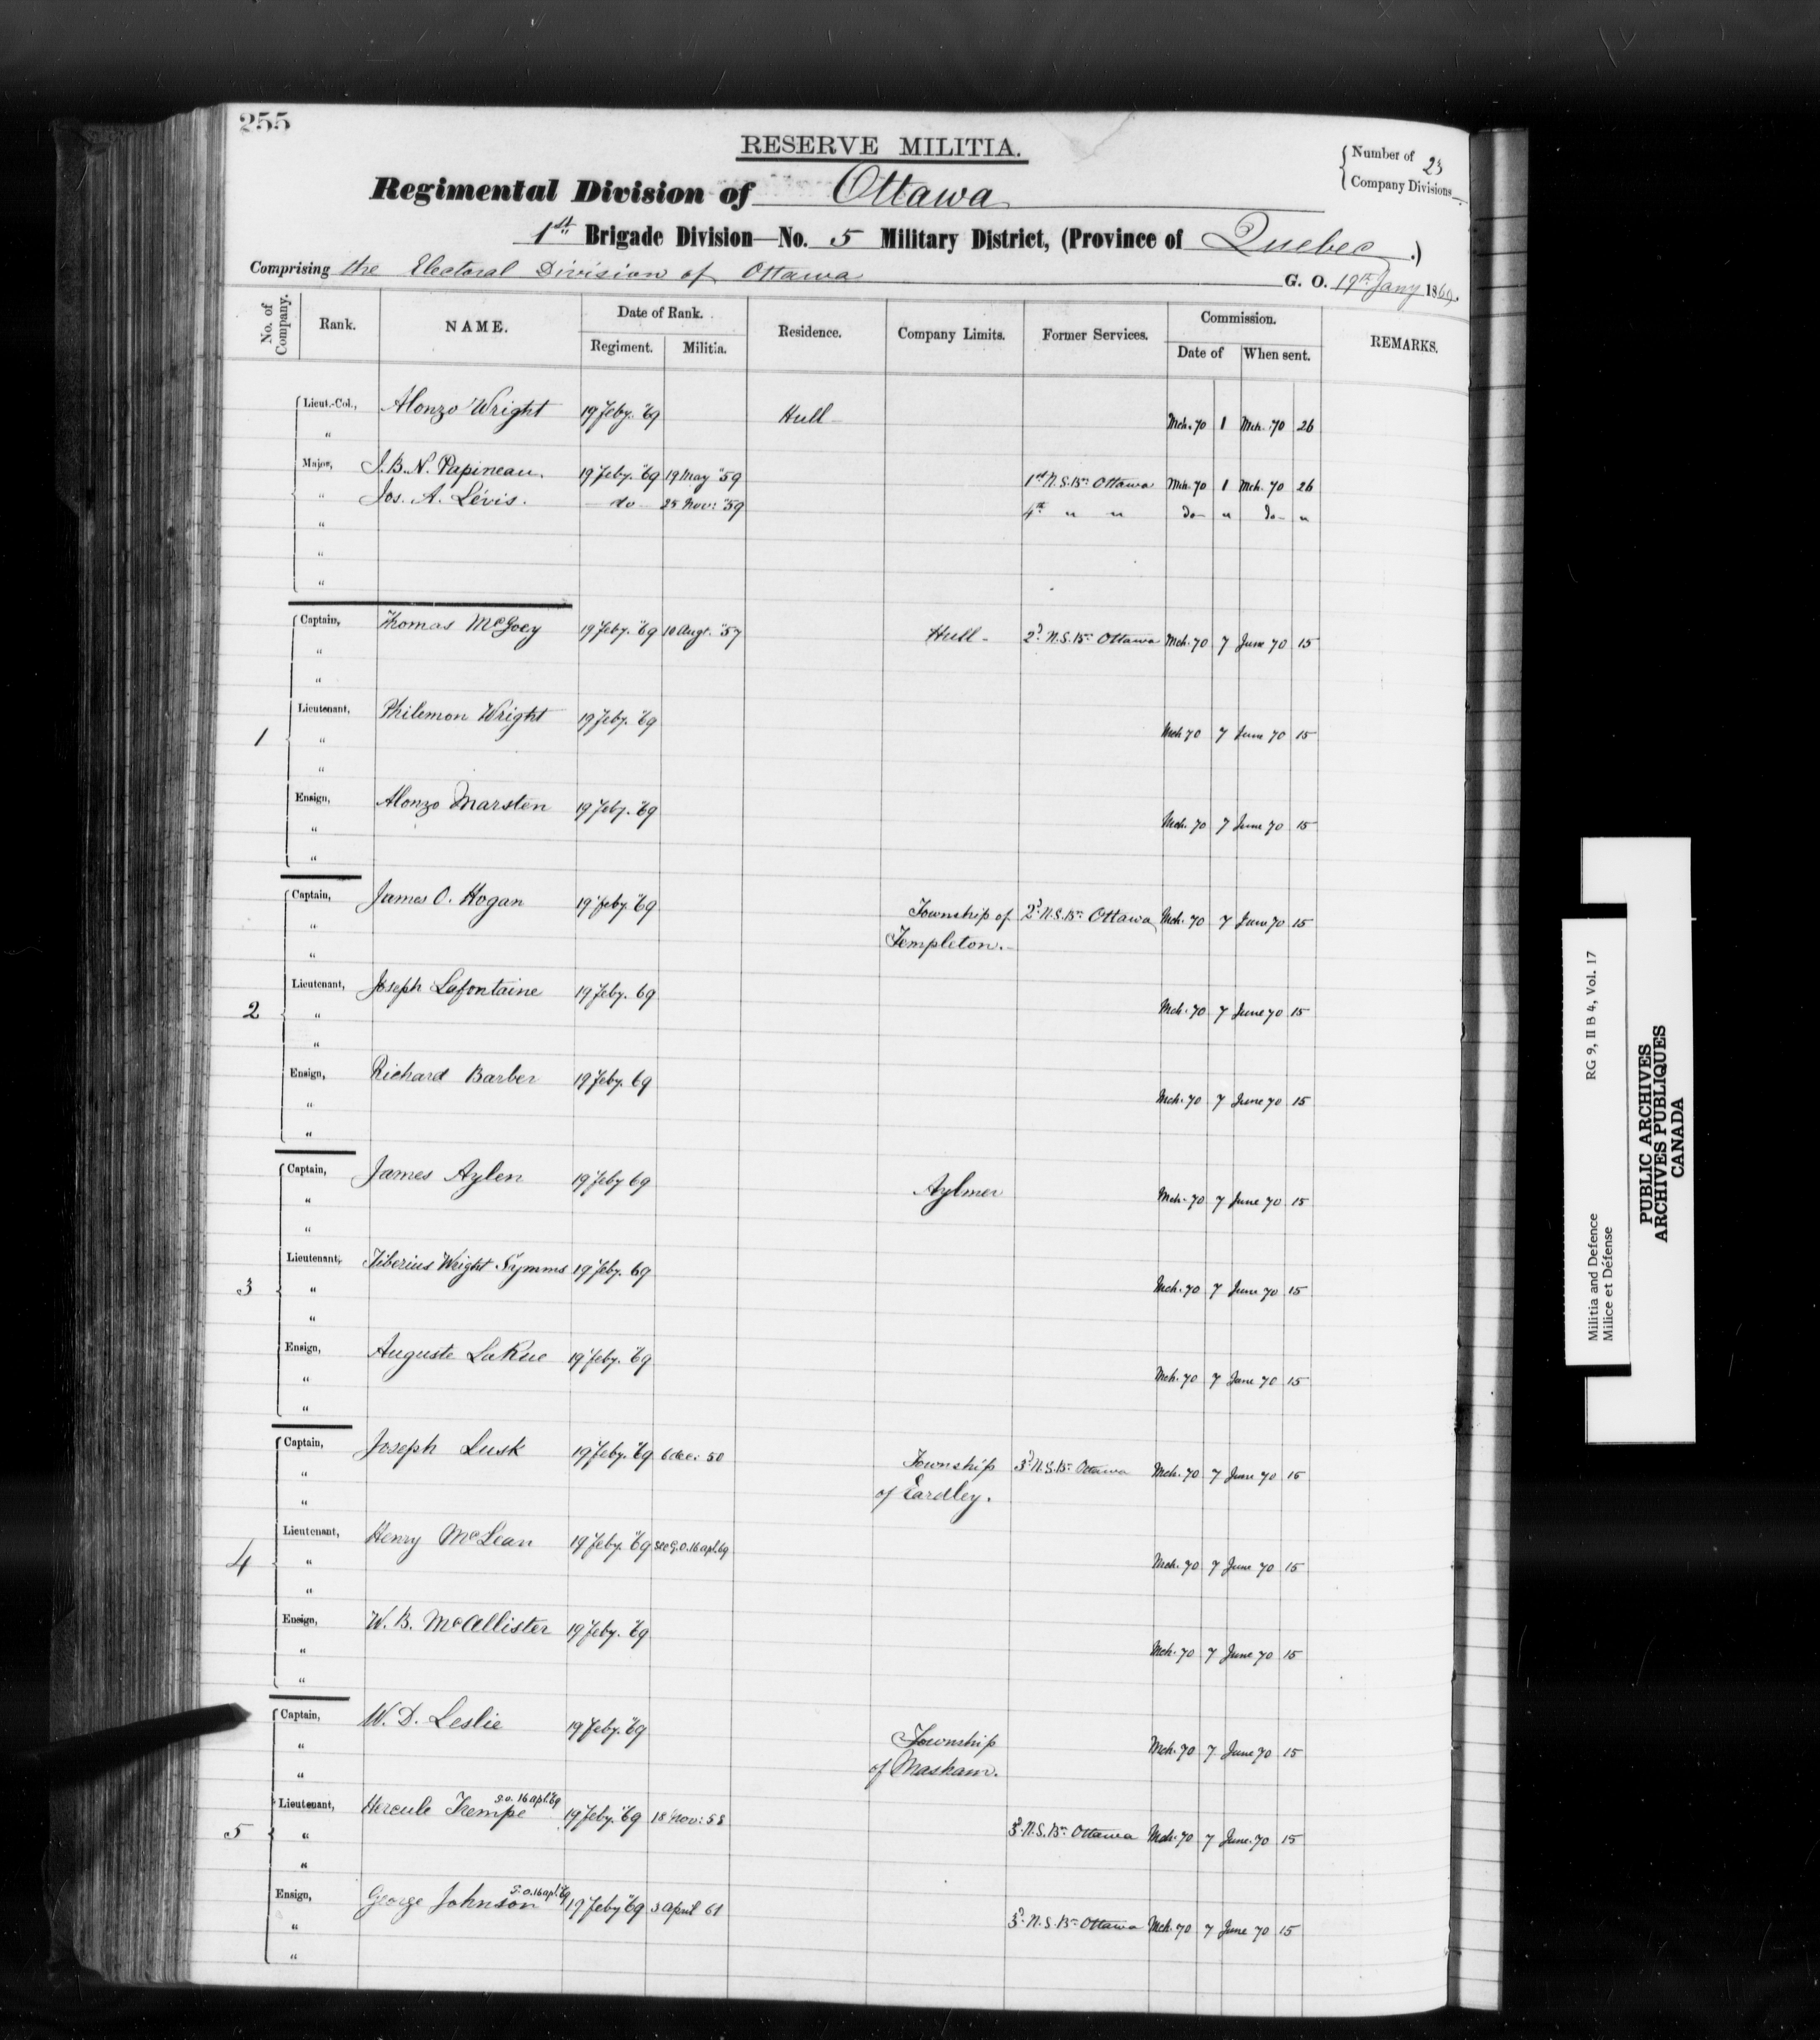 255
RESERVE MILITIA.
Number of Company Divisions 23
Regimental Division of Ottawa
1st Brigade Division—No. 5 Military District, (Province of Quebec.)
Comprising the Electoral Division of Ottawa G. O. 19th Jany 1869.
No. of Company. Rank. NAME. Date of Rank. Residence. Company Limits. Former Services. Commission. REMARKS.
Regiment. Militia. Date of When sent.
Lieut.-Col., Alonzo Wright 19 Feby. "69 Hull Mch. 70 1 Mch. 70 26
"
Major, J. B. N. Papineau. 19 Feby. "69 19 May "59 1st N.S. Bn Ottawa Mch. 70 1 Mch. 70 26
" Jos. A. Lévis. do 25 Nov: "59 4th " " do " do "
"
"
"
Captain, Thomas McGoey 19 Feby. "69 10 Augt. "57 Hull 2d N.S. Bn Ottawa Mch. 70 7 June 70 15
"
"
Lieutenant, Philemon Wright 19 Feby. "69 Mch 70 7 June 70 15
1 "
"
Ensign, Alonzo Marsten 19 Feby. "69 Mch. 70 7 June 70 15
"
"
Captain, James O. Hogan 19 Feby. "69 Township of 2d N.S. Bn Ottawa Mch. 70 7 June 70 15
" Templeton.
"
Lieutenant, Joseph Lafontaine 19 Feby. 69 Mch. 70 7 June 70 15
2 "
"
Ensign, Richard Barber 19 Feby. 69 Mch. 70 7 June 70 15
"
"
Captain, James Aylen 19 Feby 69 Aylmer Mch. 70 7 June 70 15
"
"
Lieutenant, Tiberius Wright Symms 19 Feby. 69 Mch. 70 7 June 70 15
3 "
"
Ensign, Auguste LaRue 19 Feby. "69 Mch. 70 7 June 70 15
"
"
Captain, Joseph Lusk 19 Feby. "69 6 Dec: 50 Township 3d N.S. Bn Ottawa Mch. 70 7 June 70 15
" of Eardley.
"
Lieutenant, Henry McLean 19 Feby. "69 see G.O. 16 apl. 69 Mch. 70 7 June 70 15
4 "
"
Ensign, W. B. McAllister 19 Feby. "69 Mch. 70 7 June 70 15
"
"
Captain, W. D. Leslie 19 Feby. "69 Township Mch. 70 7 June 70 15
" of Masham.
"
G.O. 16 apl. "69
Lieutenant, Hercule Trempe 19 Feby. "69 18 Nov: 58 3d N.S. Bn Ottawa Mch. 70 7 June. 70 15
5 "
"
G.O. 16 apl. "69
Ensign, George Johnson 19 Feby "69 3 April 61 3d N.S. Bn Ottawa Mch. 70 7 June 70 15
"
"
Militia and Defence RG 9, II B 4, Vol. 17
Milice et Défense
PUBLIC ARCHIVES
ARCHIVES PUBLIQUES
CANADA